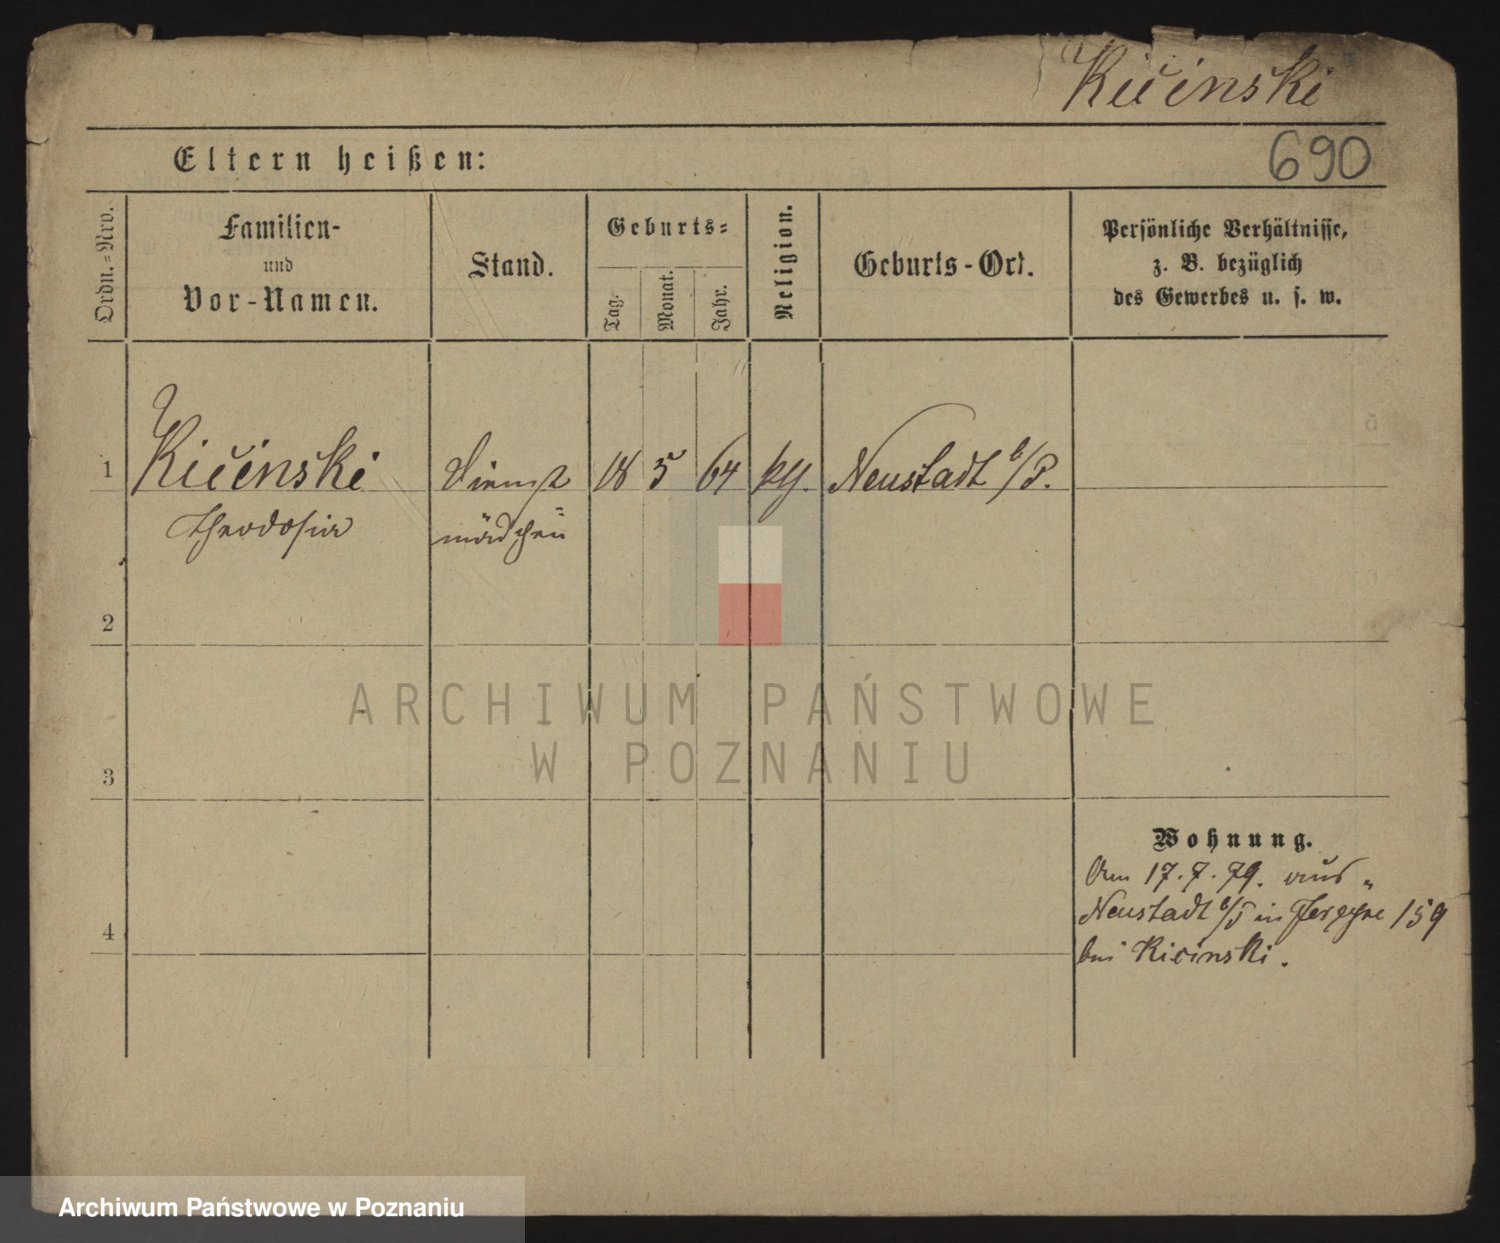 Kicinski
690
Eltern heißen:
Ordn.=Nro.
Familien-
und
Vor-Namen.
Stand.
Geburts=
Tag.
Monat.
Jahr.
Religion.
Geburts-Ort.
Persönliche Verhältnisse,
z. B. bezüglich
des Gewerbes u. s. w.
1
Kicinski
Theodosia
Dienst
mädchen
18
5
64
Neustadt b/P.
2
3
4
Wohnung.
Am 17.7.79. aus
Neustadt b/P in 159
bei Kicinski.
ARCHIWUM PAŃSTWOWE
W POZNANIU
Archiwum Państwowe w Poznaniu